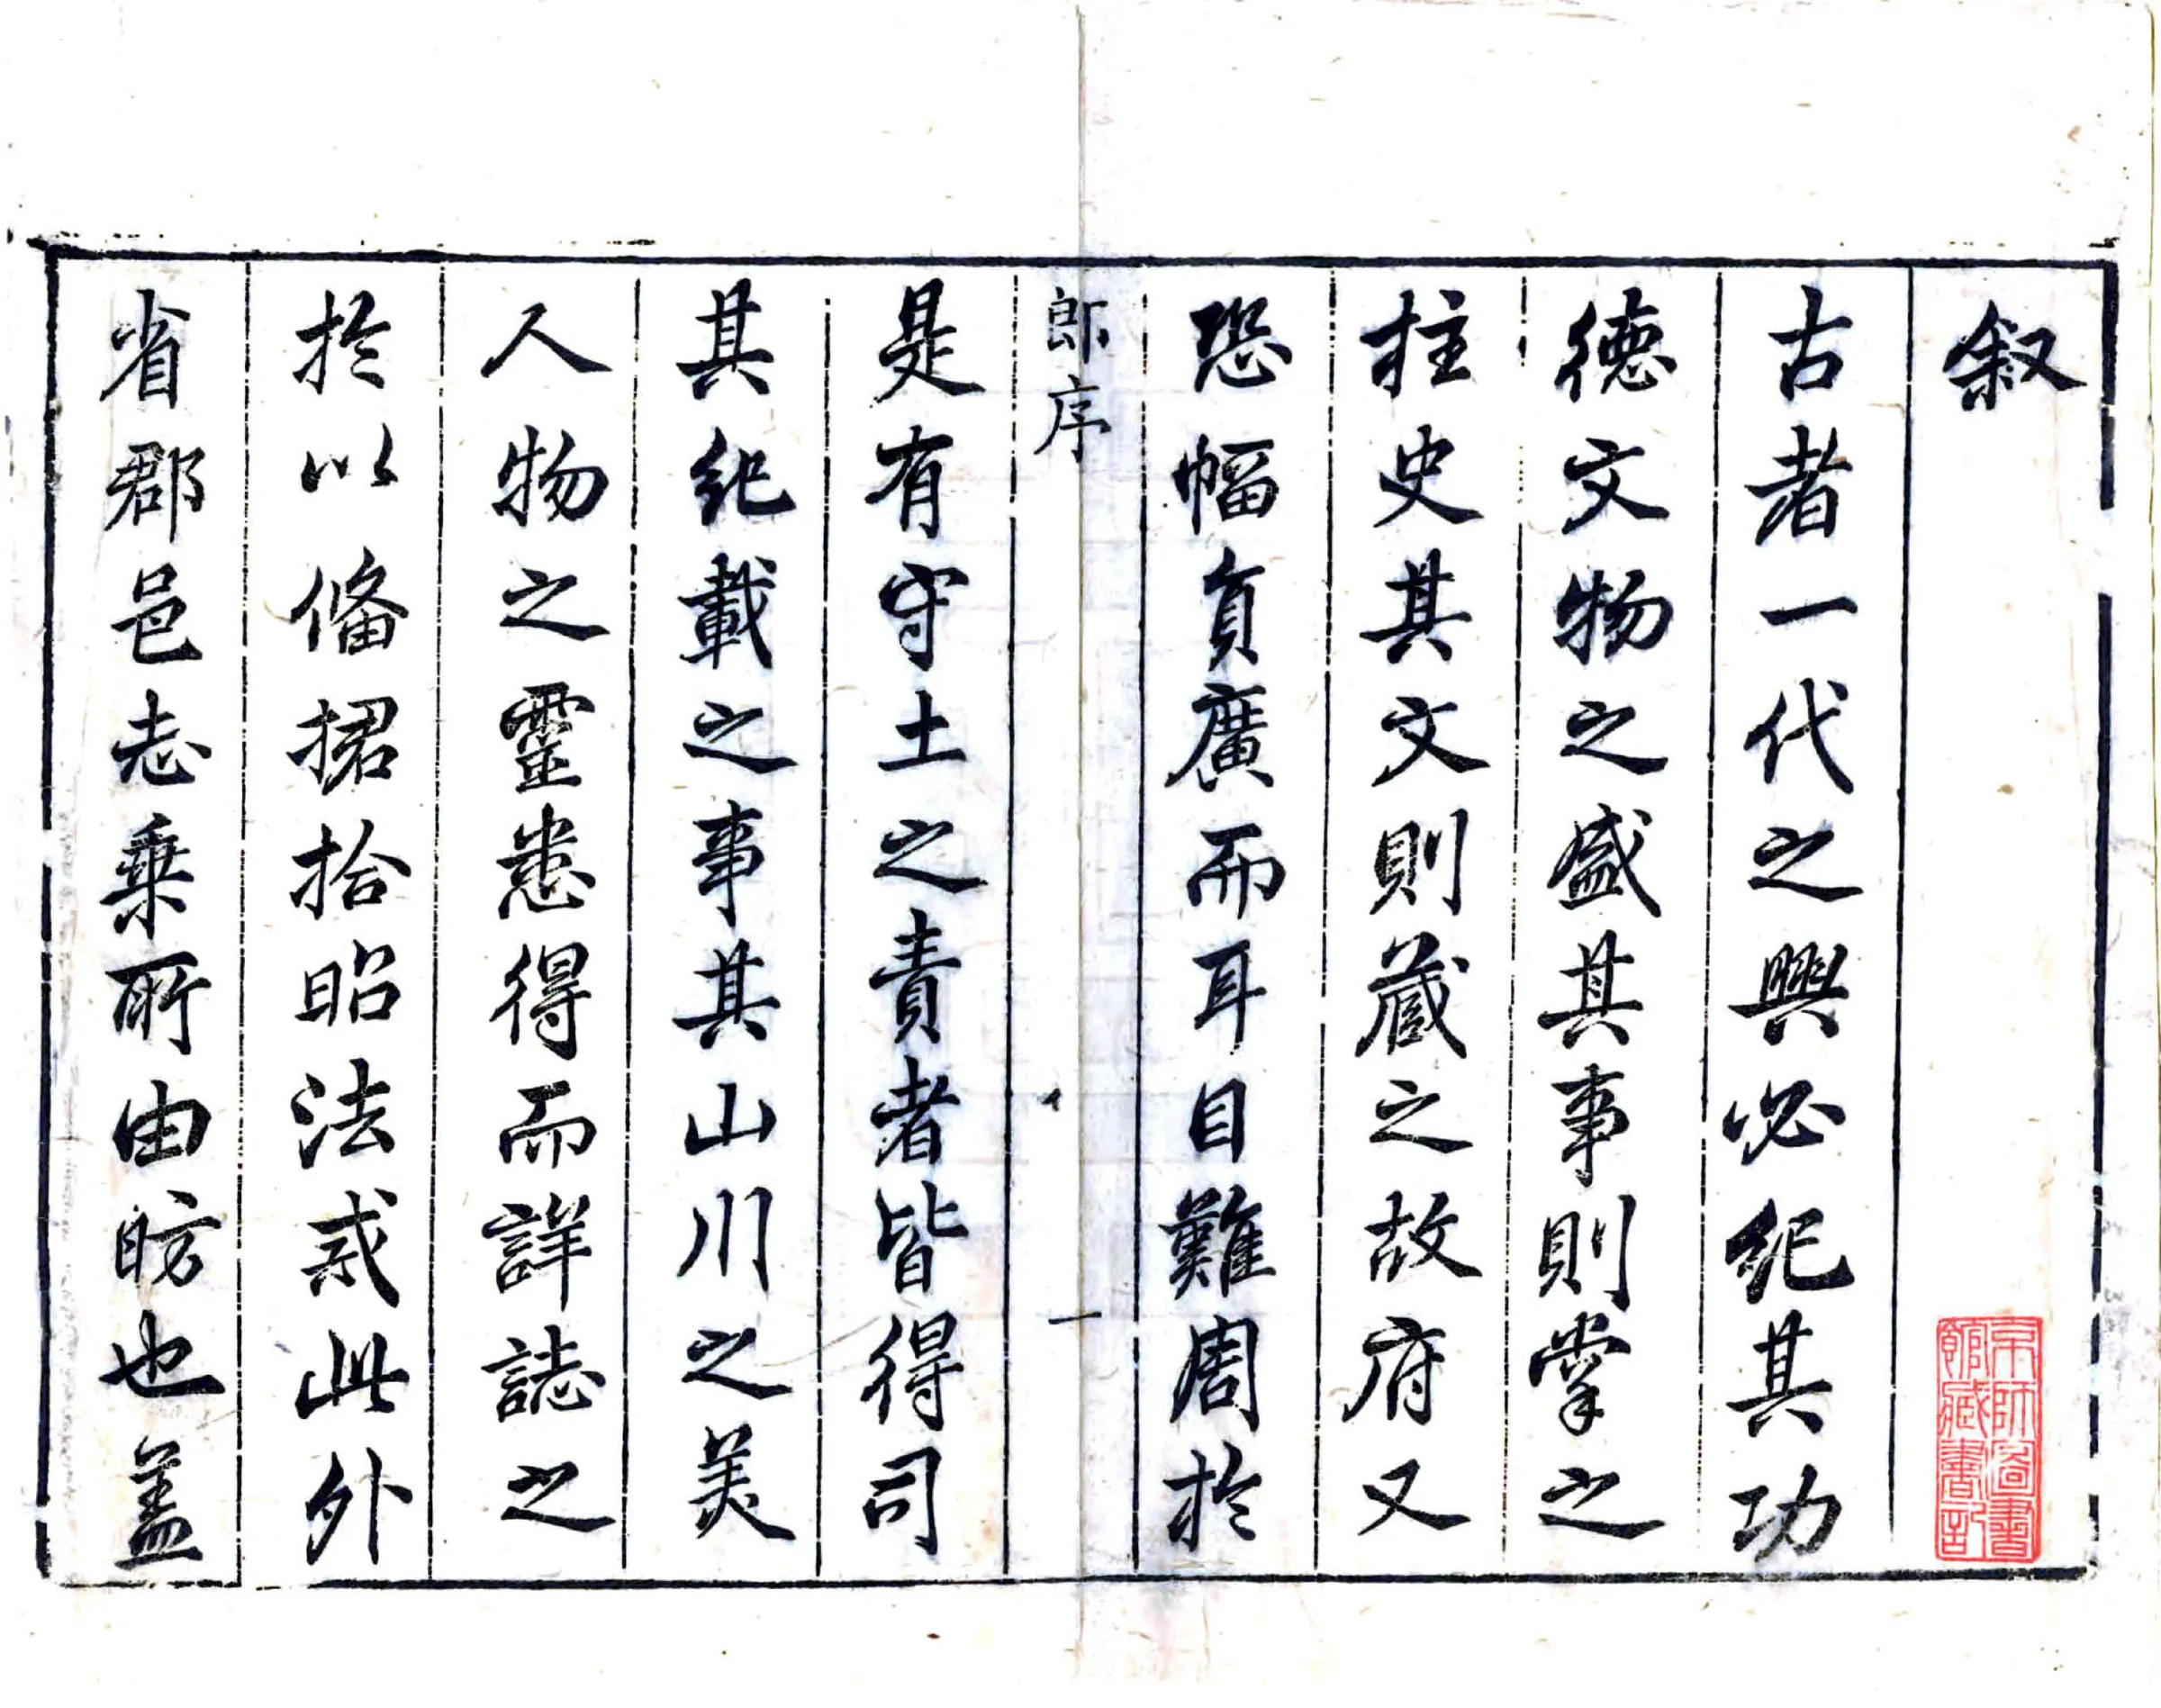 叙
古者一代之興必紀其功
德文物之盛其事則掌之
柱史其文則藏之故府又
恐幅負廣而耳目難周於
郎序
一
是有守土之責者皆得司
其紀載之事其山川之美
人物之靈悉得而詳誌之
於以俻捃拾昭法戒此外
省郡邑志乗所由昉也盖
京師圖書
館藏書記